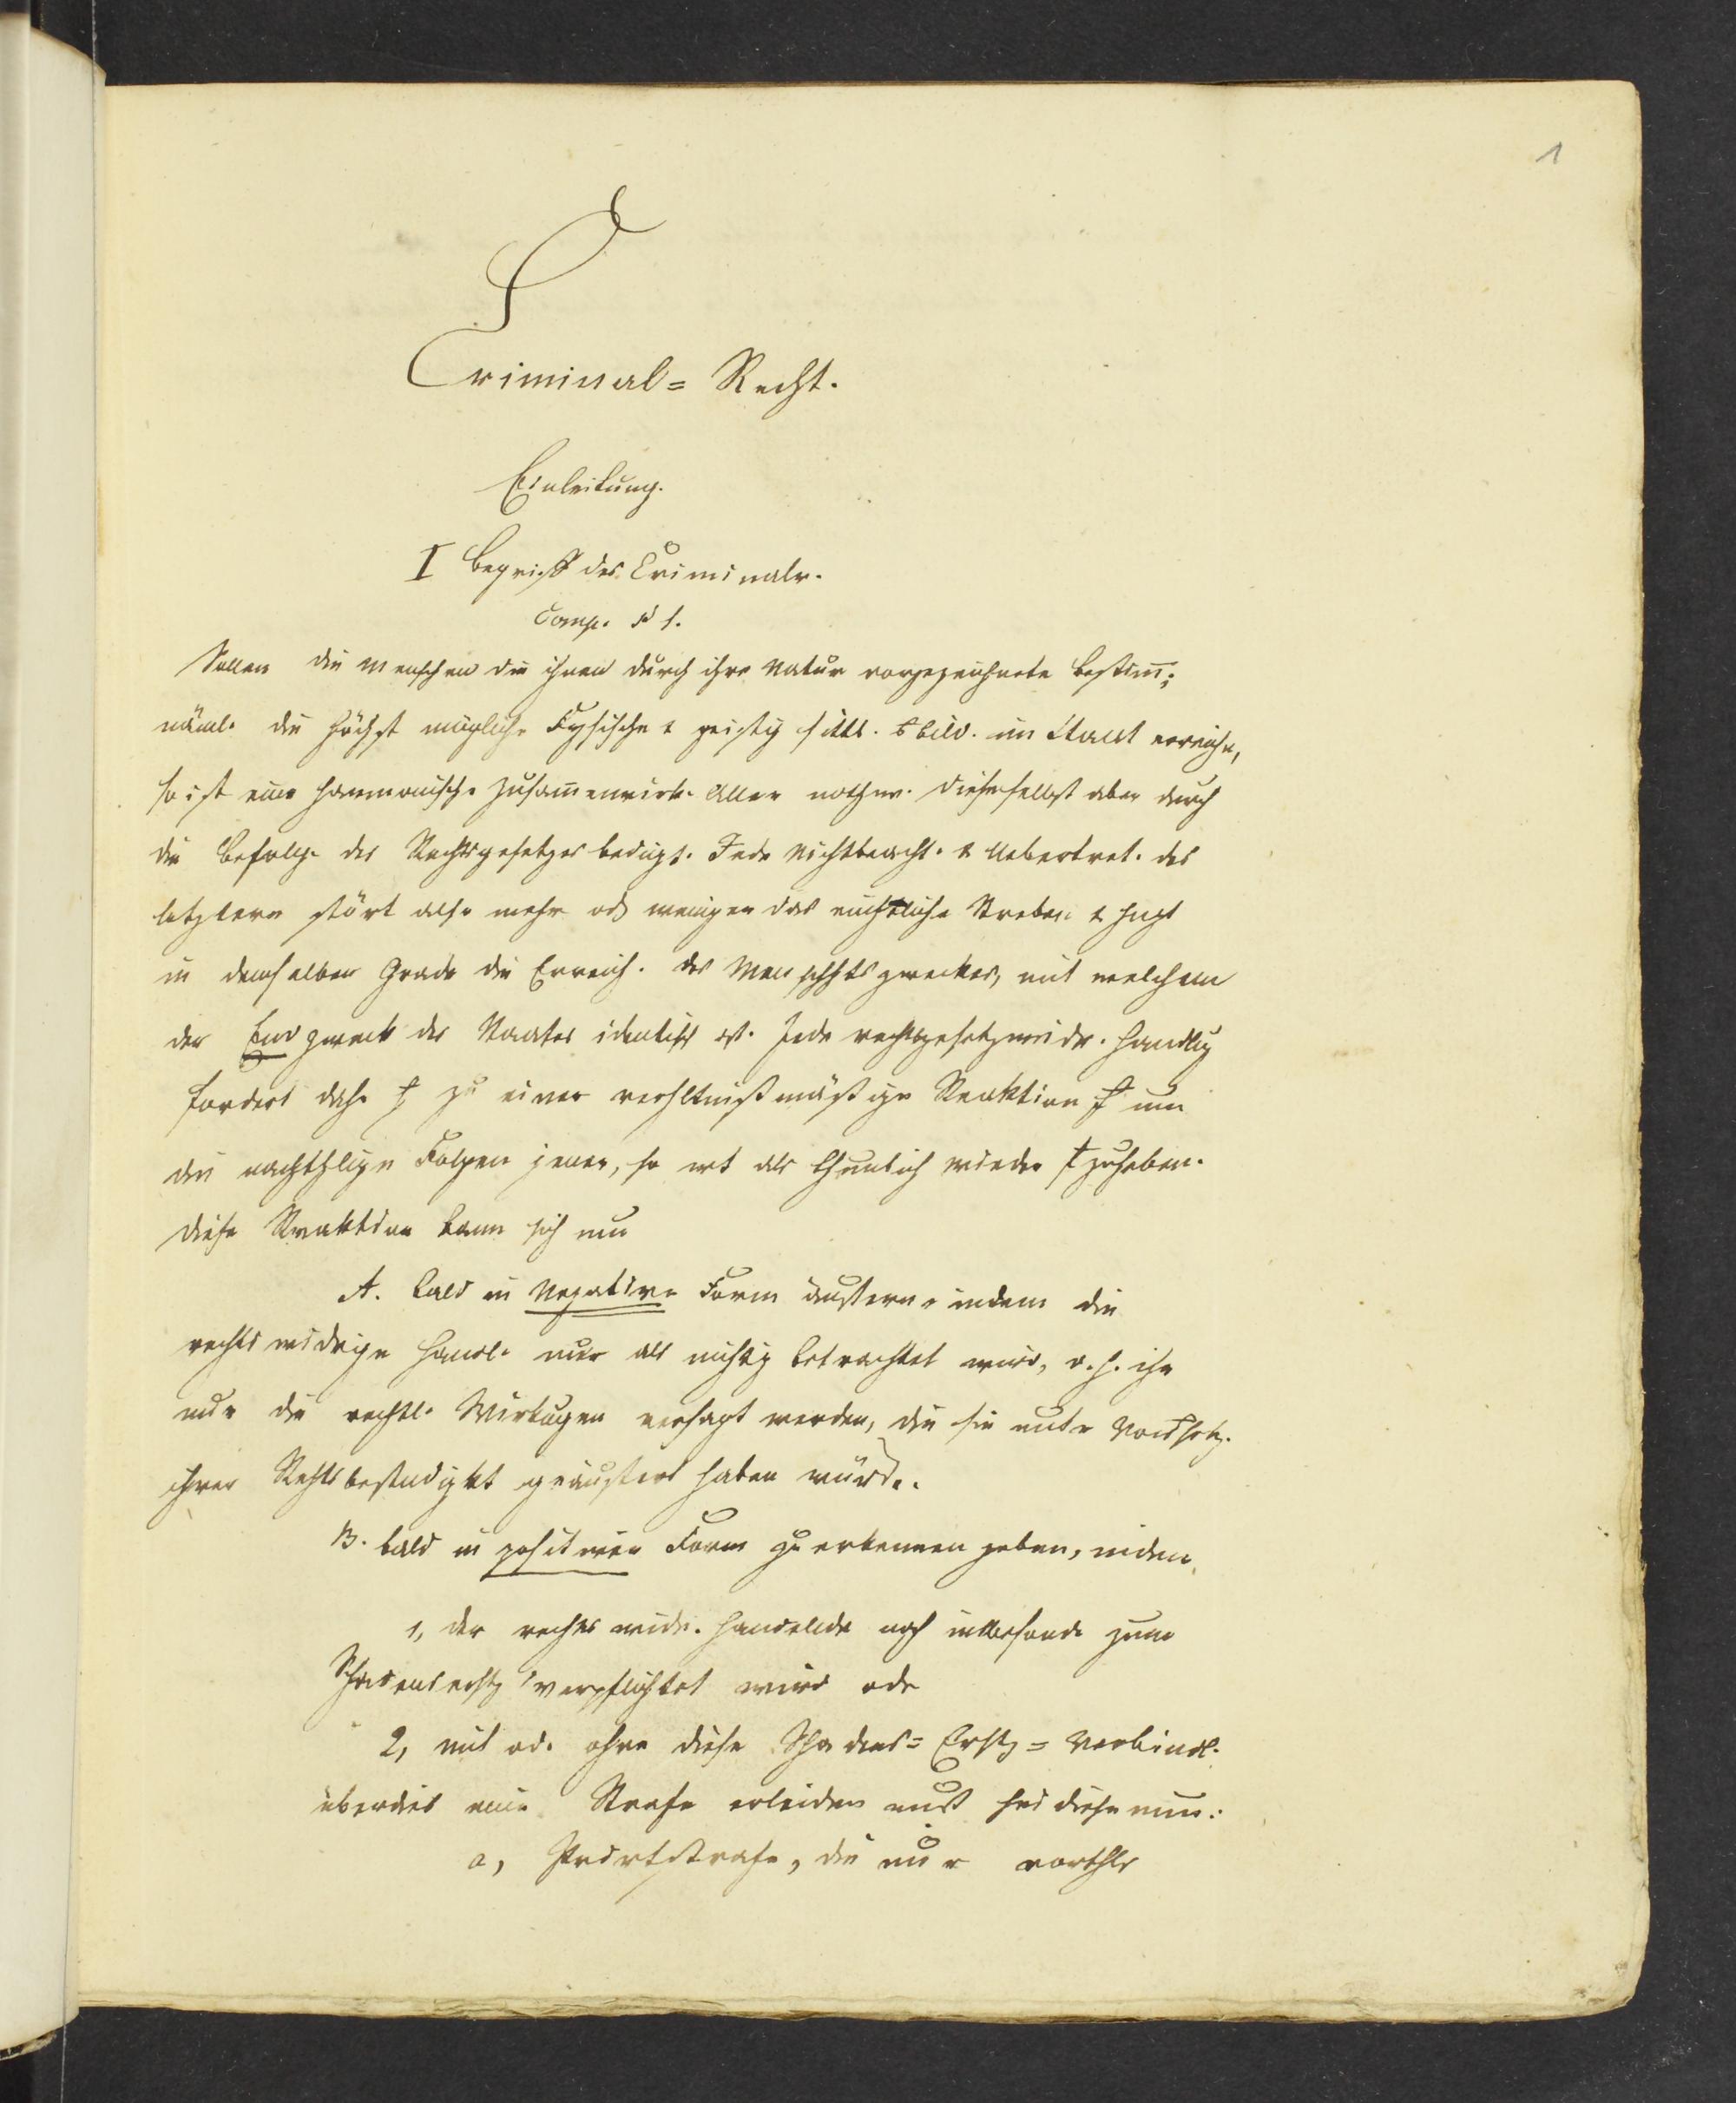 1
Criminal= Recht.
Einleitung.
I Begriff des Criminalr.
Comp. § 1.
Sollen die Menschen die ihnen durch ihre Natur vorgezeichnete Bestim̅;
näml. die höchst mögliche Fysische & geistig sittl. bild. im Staat erreichn,
so ist eine harmonische Zusam̅enwirk. Aller nothw. diese selbst aber durch
die Befolg. des Rechtsgesetzes bedingt. Jede Nichtbeacht. & Uebertret. des
letztern stört also mehr od weniger das rechtliche Streben &
in demselben Grade die Erreich. des Menschhtszweckes, mit welchem
der Endzweck des Staates identisch ist. Jede rechtsgesetzwidr. Handlug
fordert dahr zu einer verhltnißmäßign Reaktion um
die nachthlign Folgen jener, so wt als thunlich wieder zuheben.
diese Reaktion kann sich nun
A. bald in negativr Form äußern, indem die
rechtswidrign Handl. nur als nichtig betrachtet wird, d. h. ihr
nur die rechtl. Wirkugen versagt werden, die sie untr Vorssetzg.
ihrer Rehtsbestndigkt geäußert haben würde.
B. bald in positiver Form zu erkennen geben, indem
1, der rechtswidr. Handelnde noch insbesonde zum
Schadensersatz verpflichtet wird odr
2, mit od. ohne diese Schadens= Erstz= Verbindl.
überdies eine Strafe erleiden muß sei diese nun:
a, Privtstrafe, die nur vorthlr